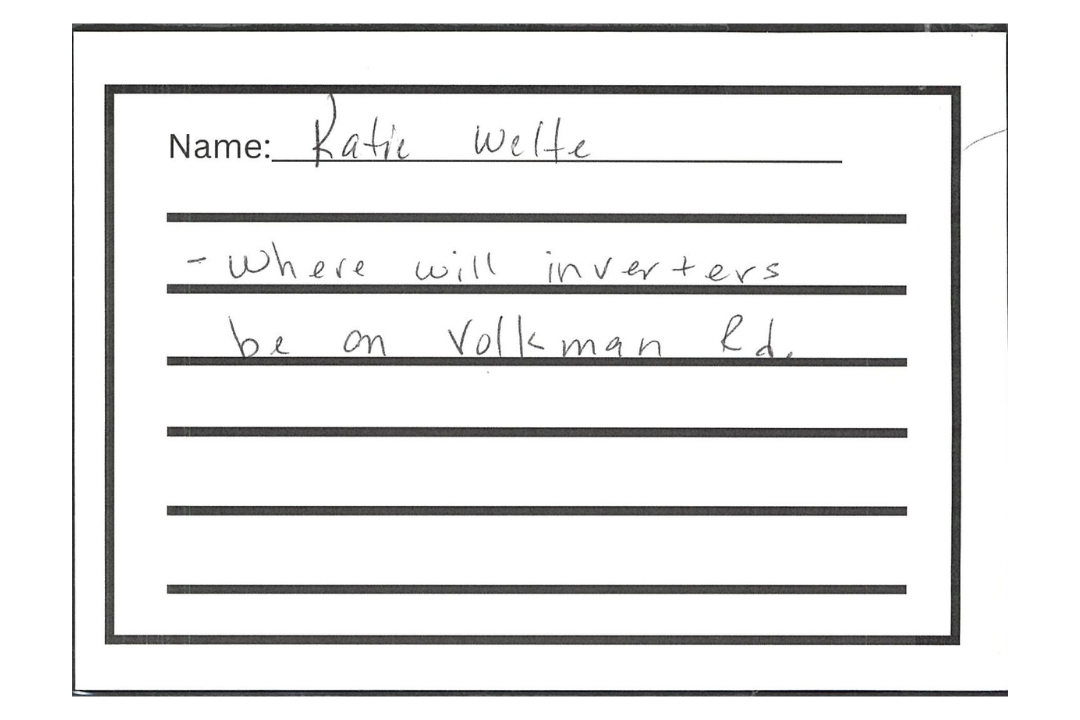 Name: Katie Welte
- Where will inverters
be on Volkman Rd.